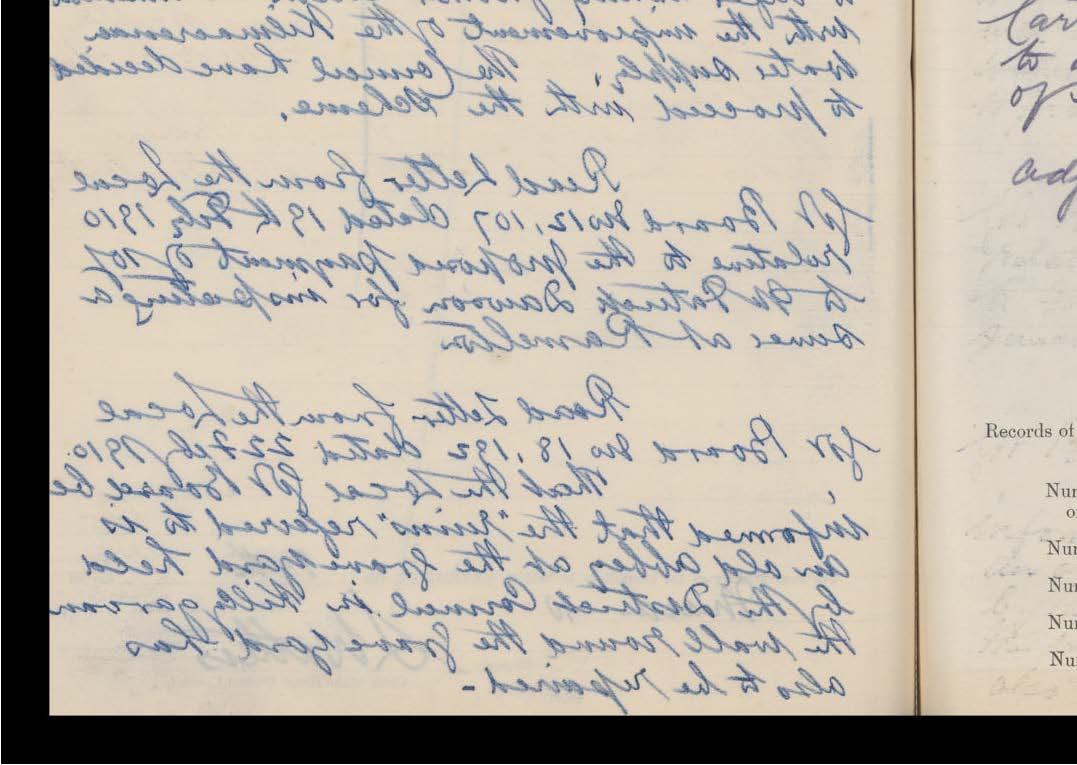 with the improvement of the Kilmacrenan
water supply, The Council have decided
to proceed with the Scheme.
Read Letter from the Local
Board No 12,107 dated 19th Feby 1910
relative to the payment of
to Mr Patrick Dawson for inspecting a
sewer at Ramelton
Read Letter from the Local
Board No 18,192 dated 22 Feby 1910.
That the Local Board be
informed that the "ruins" referred to is
an old Abbey at the Graveyard held
by the District Council in Killygarvan
the wall round the Grave yard has
also to be repaired -
to
of
adj
Records of
Num
o
Nu
Nu
Nu
Nu